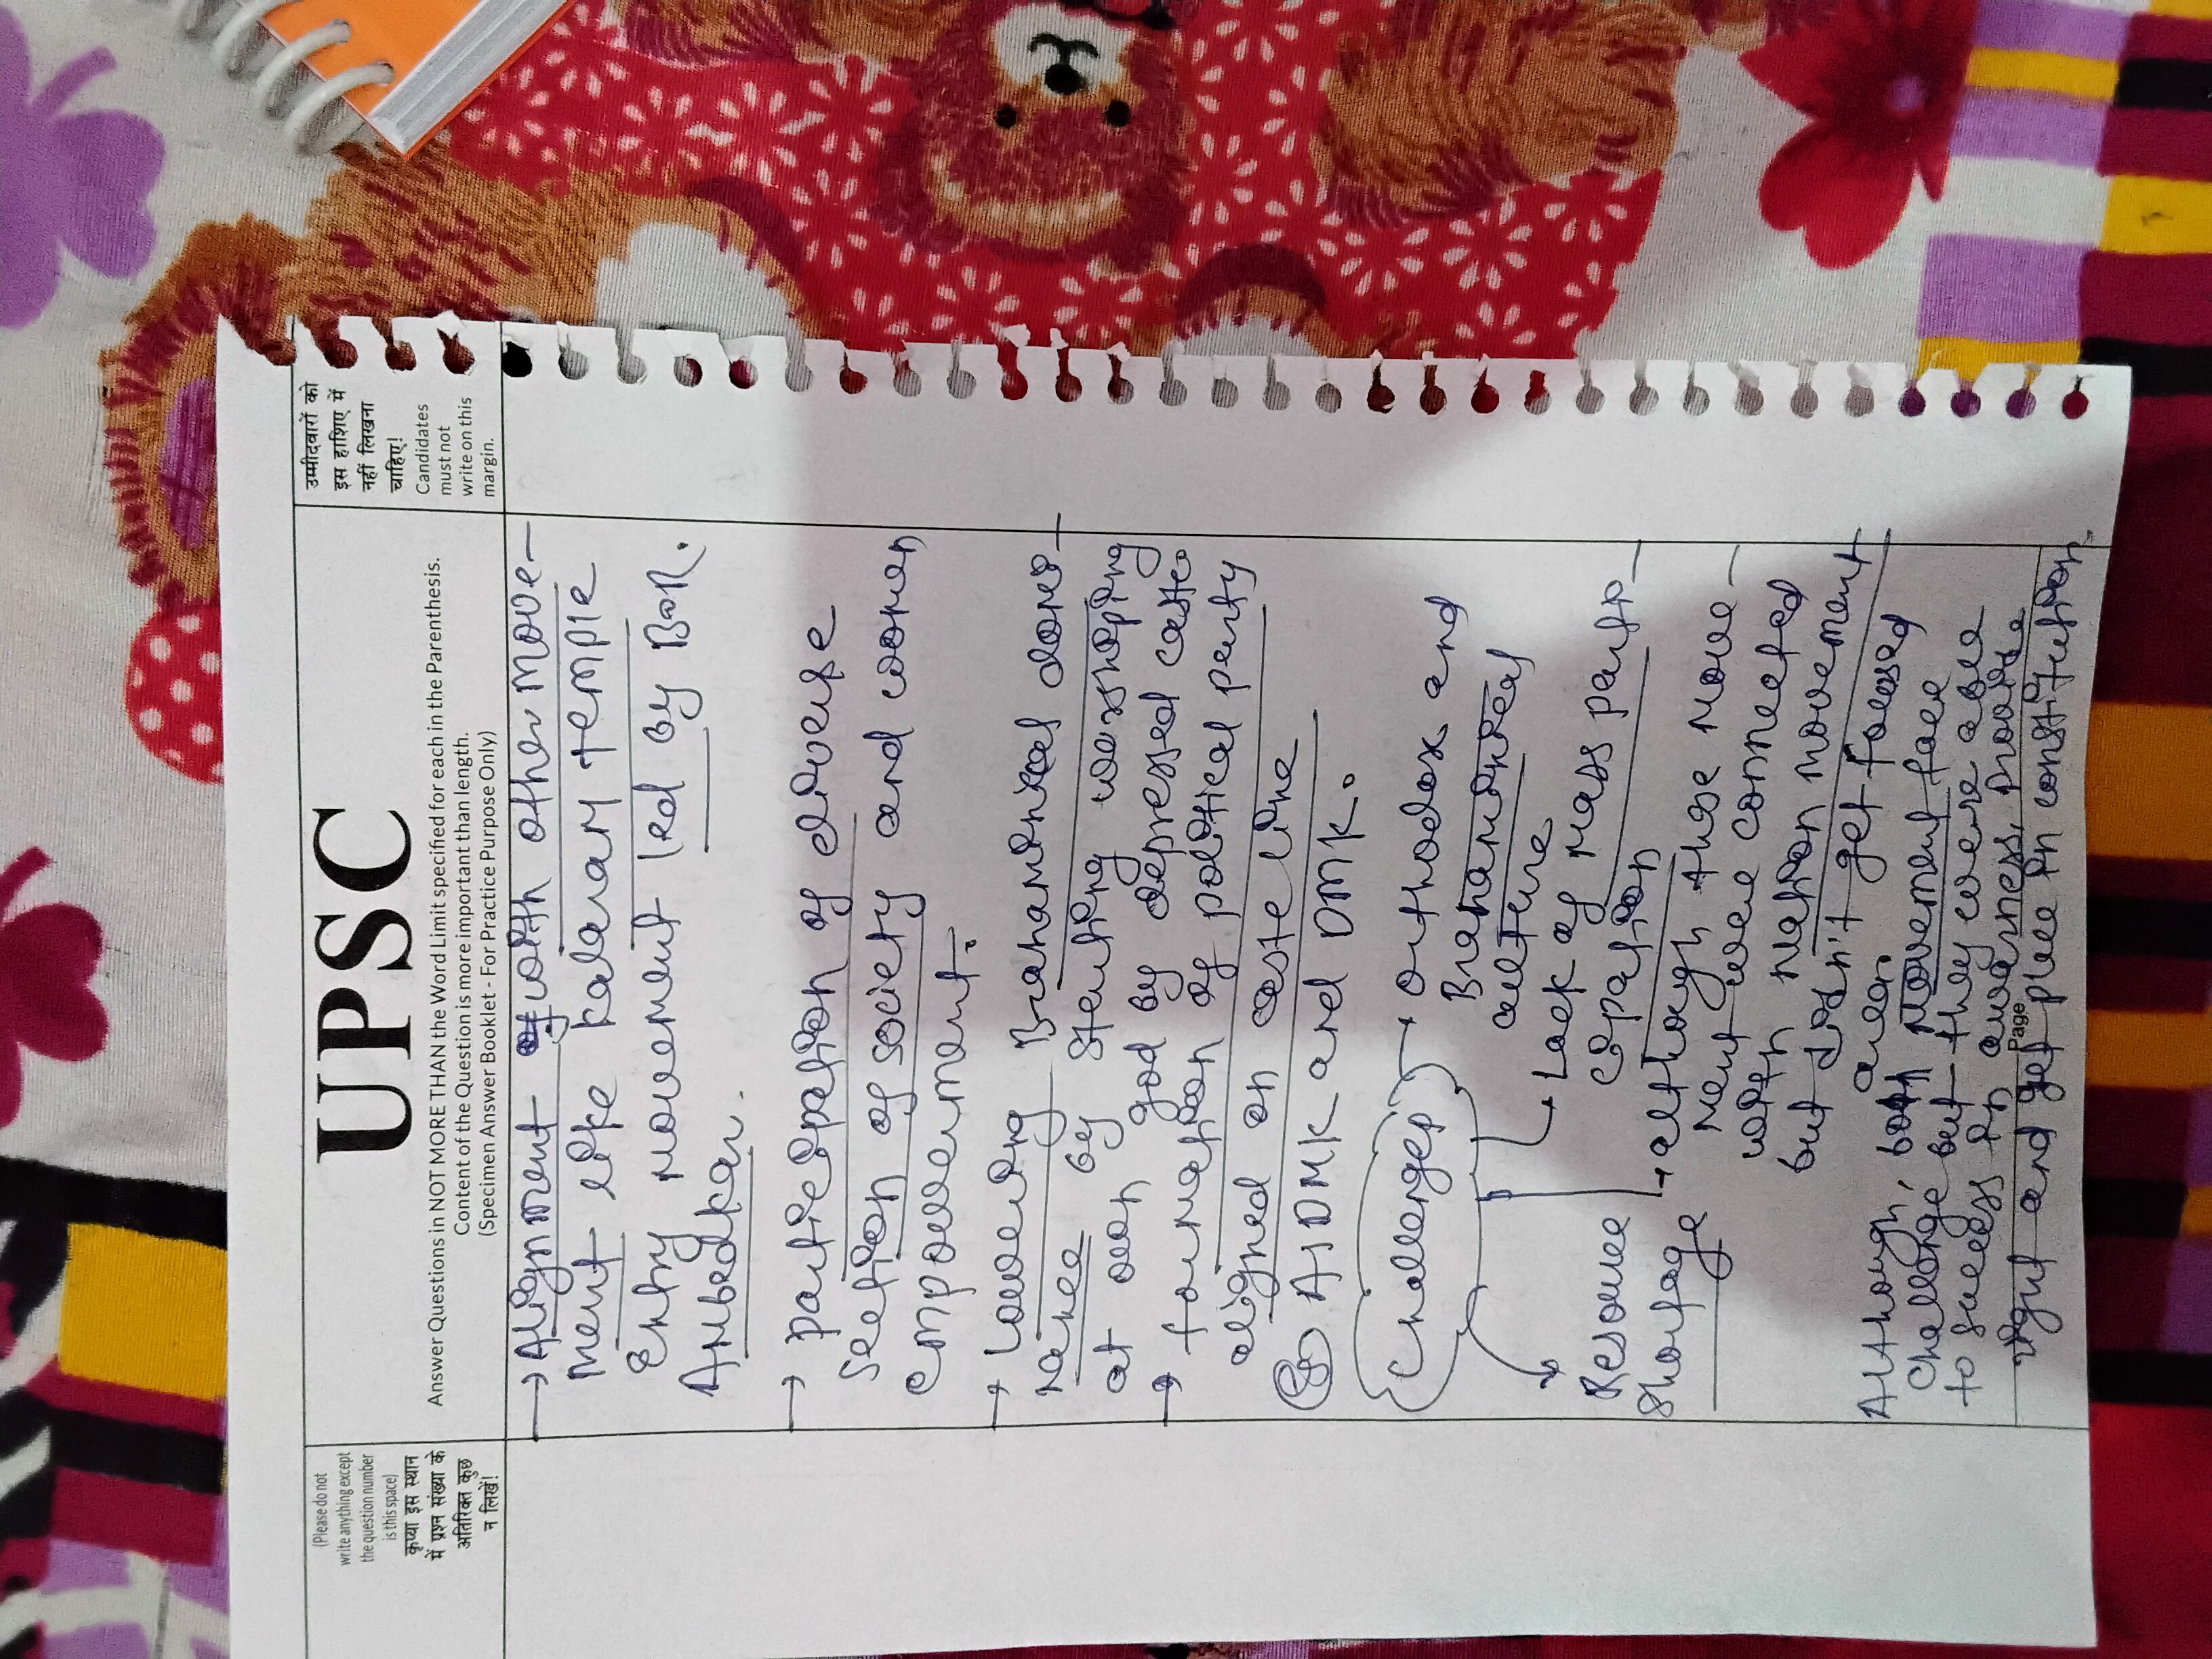 (Please do not
write anything except
the question number
is this space)
कृप्या इस स्थान
में प्रश्न संख्या के
अतिरिक्त कुछ
न लिखें!
UPSC
Answer Questions in NOT MORE THAN the Word Limit specified for each in the Parenthesis.
Content of the Question is more important than length.
(Specimen Answer Booklet - For Practice Purpose Only)
उम्मीदवारों को
इस हाशिए में
नहीं लिखना
चाहिए!
Candidates
must not
write on this
margin.
→ Alignment with other move-
ment like kalaram temple
entry movement led by B.R.
Ambedkar.
→ participation of diverse
section of society and women
empowerment.
→ lowering Brahaminical domi-
nance by starting worshipping
at own god by depressed caste.
→ formation of political party
aligned on caste line
AIDMK and DMK.
Challenges
→ orthodox and
Brahaminical
culture
→ Lack of mass parti-
cipation
→ although these move-
ment were connected
with nation movement
but didn't get focused
area.
→ Resource
shortage
Although, both movement face
challenge but they were able
to success in awareness, provide
right and get place in constitution.
Page